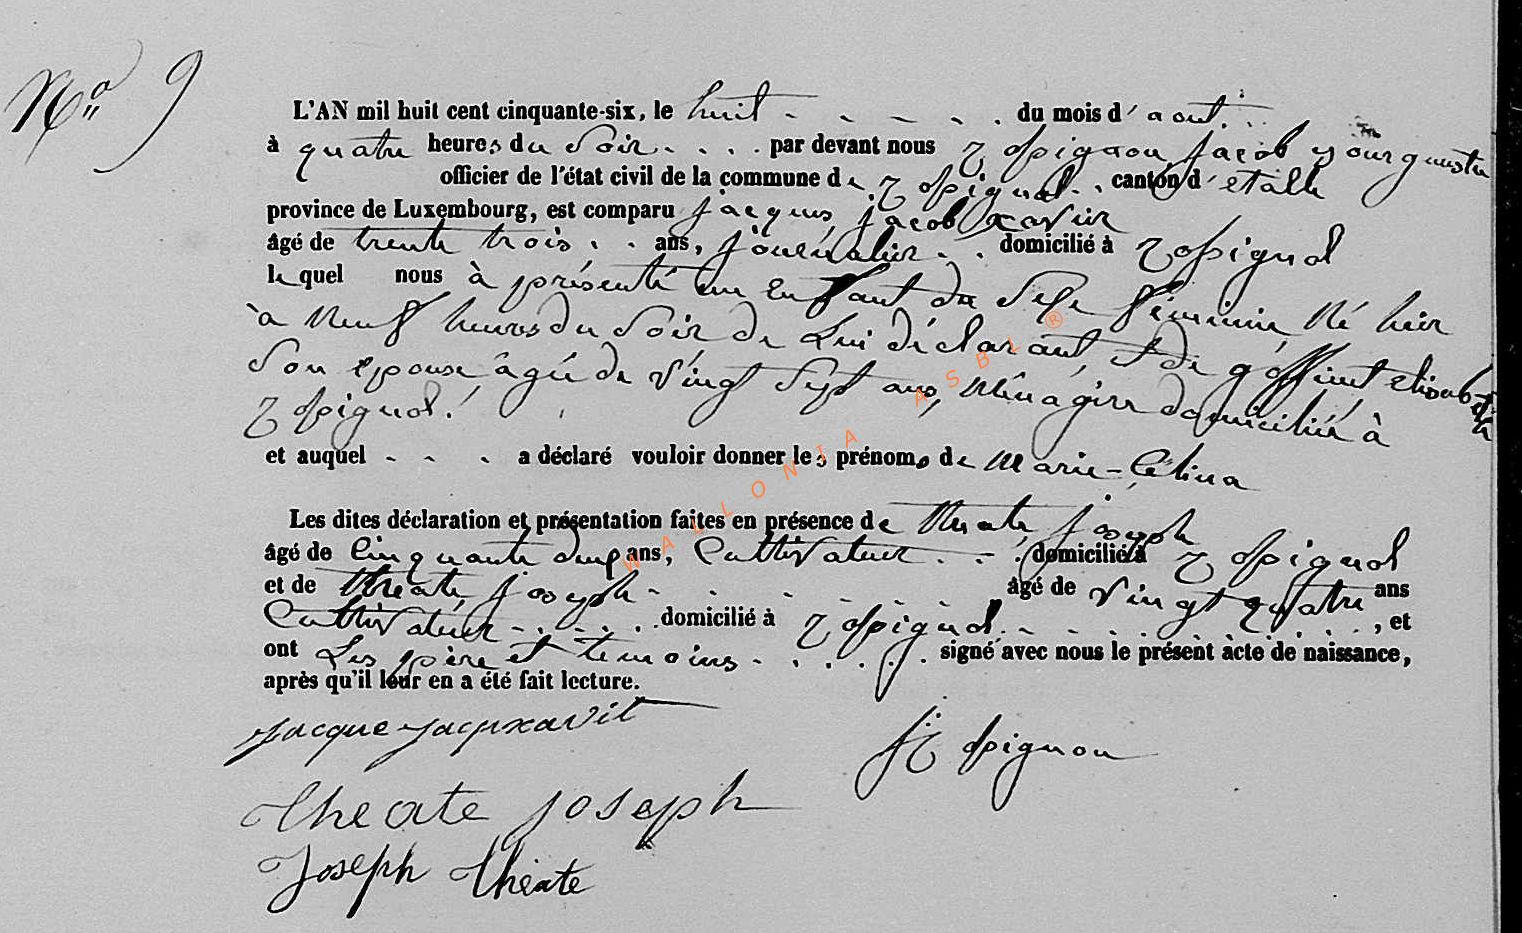 No 9
L'AN mil huit cent cinquante-six, le huit - - - - - . du mois d'aout.
à quatre heures du soir. . . . par devant nous Jacob Bourgmestre
officier de l'état civil de la commune de . canton d'etalle
province de Luxembourg, est comparu jacques jacob xavier
âgé de trente trois . . ans, journalier . . domicilié à
lequel nous à présenté un Enfant du Sexe féminin Né hier
à Neuf heures du Soir de Lui déclarant, et de
Son Epouse âgée de Vingt Sept ans, Ménagère domiciliée à
et auquel - - - a déclaré vouloir donner les prénoms de Marie-Célina
Les dites déclaration et présentation faites en présence de theate joseph
âgé de Cinquante deux ans, Cultivateur . . . domicilié à
et de theate joseph - - - - - âgé de Vingt quatre ans
Cultivateur - . . . . domicilié à , et
ont Les père et temoins - . . . . signé avec nous le présent àcte de naissance,
après qu'il leur en a été fait lecture.
Jacque
Theate joseph
Joseph théate
WALLONIA ASBL ®